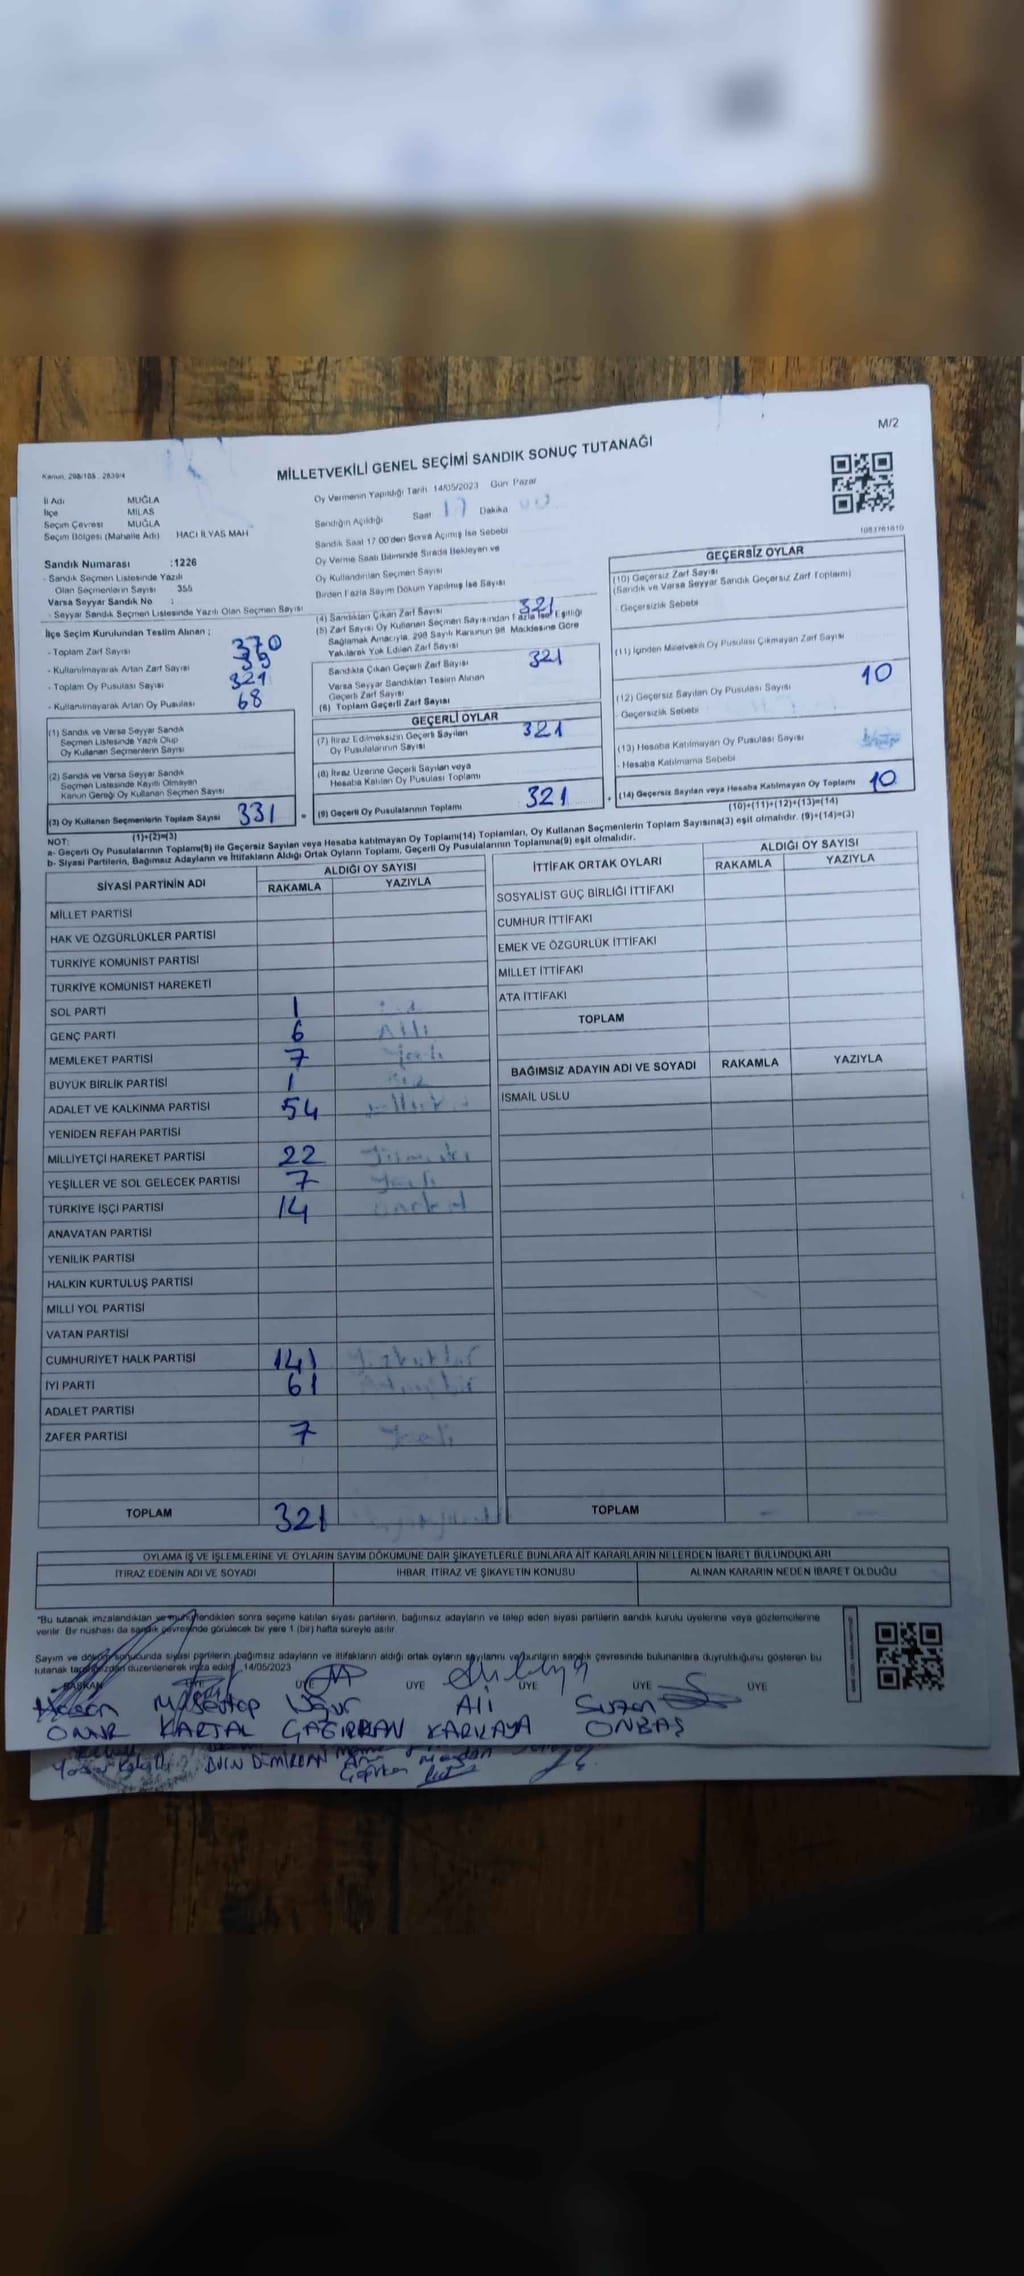 M/2
MİLLETVEKİLİ GENEL SEÇİMİ SANDIK SONUÇ TUTANAĞI
Kanun, 298/105 , 2839/4
İl Adı MUĞLA
İlçe MİLAS
Seçim Çevresi MUĞLA
Seçim Bölgesi (Mahalle Adı) HACI İLYAS MAH
Sandık Numarası :1226
- Sandık Seçmen Listesinde Yazılı
Olan Seçmenlerin Sayısı 355
Varsa Seyyar Sandık No :
- Seyyar Sandık Seçmen Listesinde Yazılı Olan Seçmen Sayısı
Oy Vermenin Yapıldığı Tarih 14/05/2023 Gün Pazar
Sandığın Açıldığı Saat 17 Dakika
Sandık Saat 17.00'den Sonra Açımış İse Sebebi
Oy Verme Saati Bitiminde Sırada Bekleyen ve
Oy Kullandırılan Seçmen Sayısı
Birden Fazla Sayım Döküm Yapılmış İse Sayısı
İlçe Seçim Kurulundan Teslim Alınan ;
- Toplam Zarf Sayısı 370
- Kullanılmayarak Artan Zarf Sayısı 39
- Toplam Oy Pusulası Sayısı
- Kullanılmayarak Artan Oy Pusulası 68
(1) Sandık ve Varsa Seyyar Sandık
Seçmen Listesinde Yazılı Olup
Oy Kullanan Seçmenlerin Sayısı
(2) Sandık ve Varsa Seyyar Sandık
Seçmen Listesinde Kayıtlı Olmayan
Kanun Gereği Oy Kullanan Seçmen Sayısı
(3) Oy Kullanan Seçmenlerin Toplam Sayısı 331
(1)+(2)=(3)
(4) Sandıktan Çıkan Zarf Sayısı 321
(5) Zarf Sayısı Oy Kullanan Seçmen Sayısından Fazla İse; Eşitliği
Sağlamak Amacıyla, 298 Sayılı Kanunun 98. Maddesine Göre
Yakılarak Yok Edilen Zarf Sayısı
Sandıkta Çıkan Geçerli Zarf Sayısı 321
Varsa Seyyar Sandıktan Teslim Alınan
Geçerli Zarf Sayısı
(6) Toplam Geçerli Zarf Sayısı
GEÇERLİ OYLAR
(7) İtiraz Edilmeksizin Geçerli Sayılan 321
Oy Pusulalarının Sayısı
(8) İtiraz Üzerine Geçerli Sayılan veya
Hesaba Katılan Oy Pusulası Toplamı
(9) Geçerli Oy Pusulalarının Toplamı 321
1083761810
GEÇERSİZ OYLAR
(10) Geçersiz Zarf Sayısı
(Sandık ve Varsa Seyyar Sandık Geçersiz Zarf Toplamı)
- Geçersizlik Sebebi
(11) İçinden Milletvekili Oy Pusulası Çıkmayan Zarf Sayısı
(12) Geçersiz Sayılan Oy Pusulası Sayısı 10
- Geçersizlik Sebebi
(13) Hesaba Katılmayan Oy Pusulası Sayısı
- Hesaba Katılmama Sebebi
(14) Geçersiz Sayılan veya Hesaba Katılmayan Oy Toplamı 10
(10)+(11)+(12)+(13)=(14)
NOT:
a- Geçerli Oy Pusulalarının Toplamı(9) ile Geçersiz Sayılan veya Hesaba katılmayan Oy Toplamı(14) Toplamları, Oy Kullanan Seçmenlerin Toplam Sayısına(3) eşit olmalıdır. (9)+(14)=(3)
b- Siyasi Partilerin, Bağımsız Adayların ve İttifakların Aldığı Ortak Oyların Toplamı, Geçerli Oy Pusulalarının Toplamına(9) eşit olmalıdır.
SİYASİ PARTİNİN ADI ALDIĞI OY SAYISI
RAKAMLA YAZIYLA
MİLLET PARTİSİ
HAK VE ÖZGÜRLÜKLER PARTİSİ
TÜRKİYE KOMÜNİST PARTİSİ
TÜRKİYE KOMÜNİST HAREKETİ
SOL PARTİ 1
GENÇ PARTİ 6 Altı
MEMLEKET PARTİSİ 7 Yedi
BÜYÜK BİRLİK PARTİSİ 1 Bir
ADALET VE KALKINMA PARTİSİ 54
YENİDEN REFAH PARTİSİ
MİLLİYETÇİ HAREKET PARTİSİ 22
YEŞİLLER VE SOL GELECEK PARTİSİ 7
TÜRKİYE İŞÇİ PARTİSİ 14
ANAVATAN PARTİSİ
YENİLİK PARTİSİ
HALKIN KURTULUŞ PARTİSİ
MİLLİ YOL PARTİSİ
VATAN PARTİSİ
CUMHURİYET HALK PARTİSİ 141
İYİ PARTİ 61
ADALET PARTİSİ
ZAFER PARTİSİ 7
TOPLAM 321
İTTİFAK ORTAK OYLARI ALDIĞI OY SAYISI
RAKAMLA YAZIYLA
SOSYALİST GÜÇ BİRLİĞİ İTTİFAKI
CUMHUR İTTİFAKI
EMEK VE ÖZGÜRLÜK İTTİFAKI
MİLLET İTTİFAKI
ATA İTTİFAKI
TOPLAM
BAĞIMSIZ ADAYIN ADI VE SOYADI RAKAMLA YAZIYLA
İSMAİL USLU
TOPLAM - -
OYLAMA İŞ VE İŞLEMLERİNE VE OYLARIN SAYIM DÖKÜMÜNE DAİR ŞİKAYETLERLE BUNLARA AİT KARARLARIN NELERDEN İBARET BULUNDUKLARI
İTİRAZ EDENİN ADI VE SOYADI İHBAR, İTİRAZ VE ŞİKAYETİN KONUSU ALINAN KARARIN NEDEN İBARET OLDUĞU
"Bu tutanak imzalandıktan ve mühürlendikten sonra seçime katılan siyasi partilerin, bağımsız adayların ve talep eden siyasi partilerin sandık kurulu üyelerine veya gözlemcilerine
verilir. Bir nüshası da sandık çevresinde görülecek bir yere 1 (bir) hafta süreyle asılır.
Sayım ve döküm sonucunda siyasi partilerin, bağımsız adayların ve ittifakların aldığı ortak oyların sayılarını ve bunların sandık çevresinde bulunanlara duyrulduğunu gösteren bu
tutanak tarafımızdan düzenlenerek imza edildi. 14/05/2023
BAŞKAN ÜYE ÜYE ÜYE ÜYE
Uğur ALİ Suzan
ONUR KARTAL KARKAYA ONBAŞ
DEMİRCAN